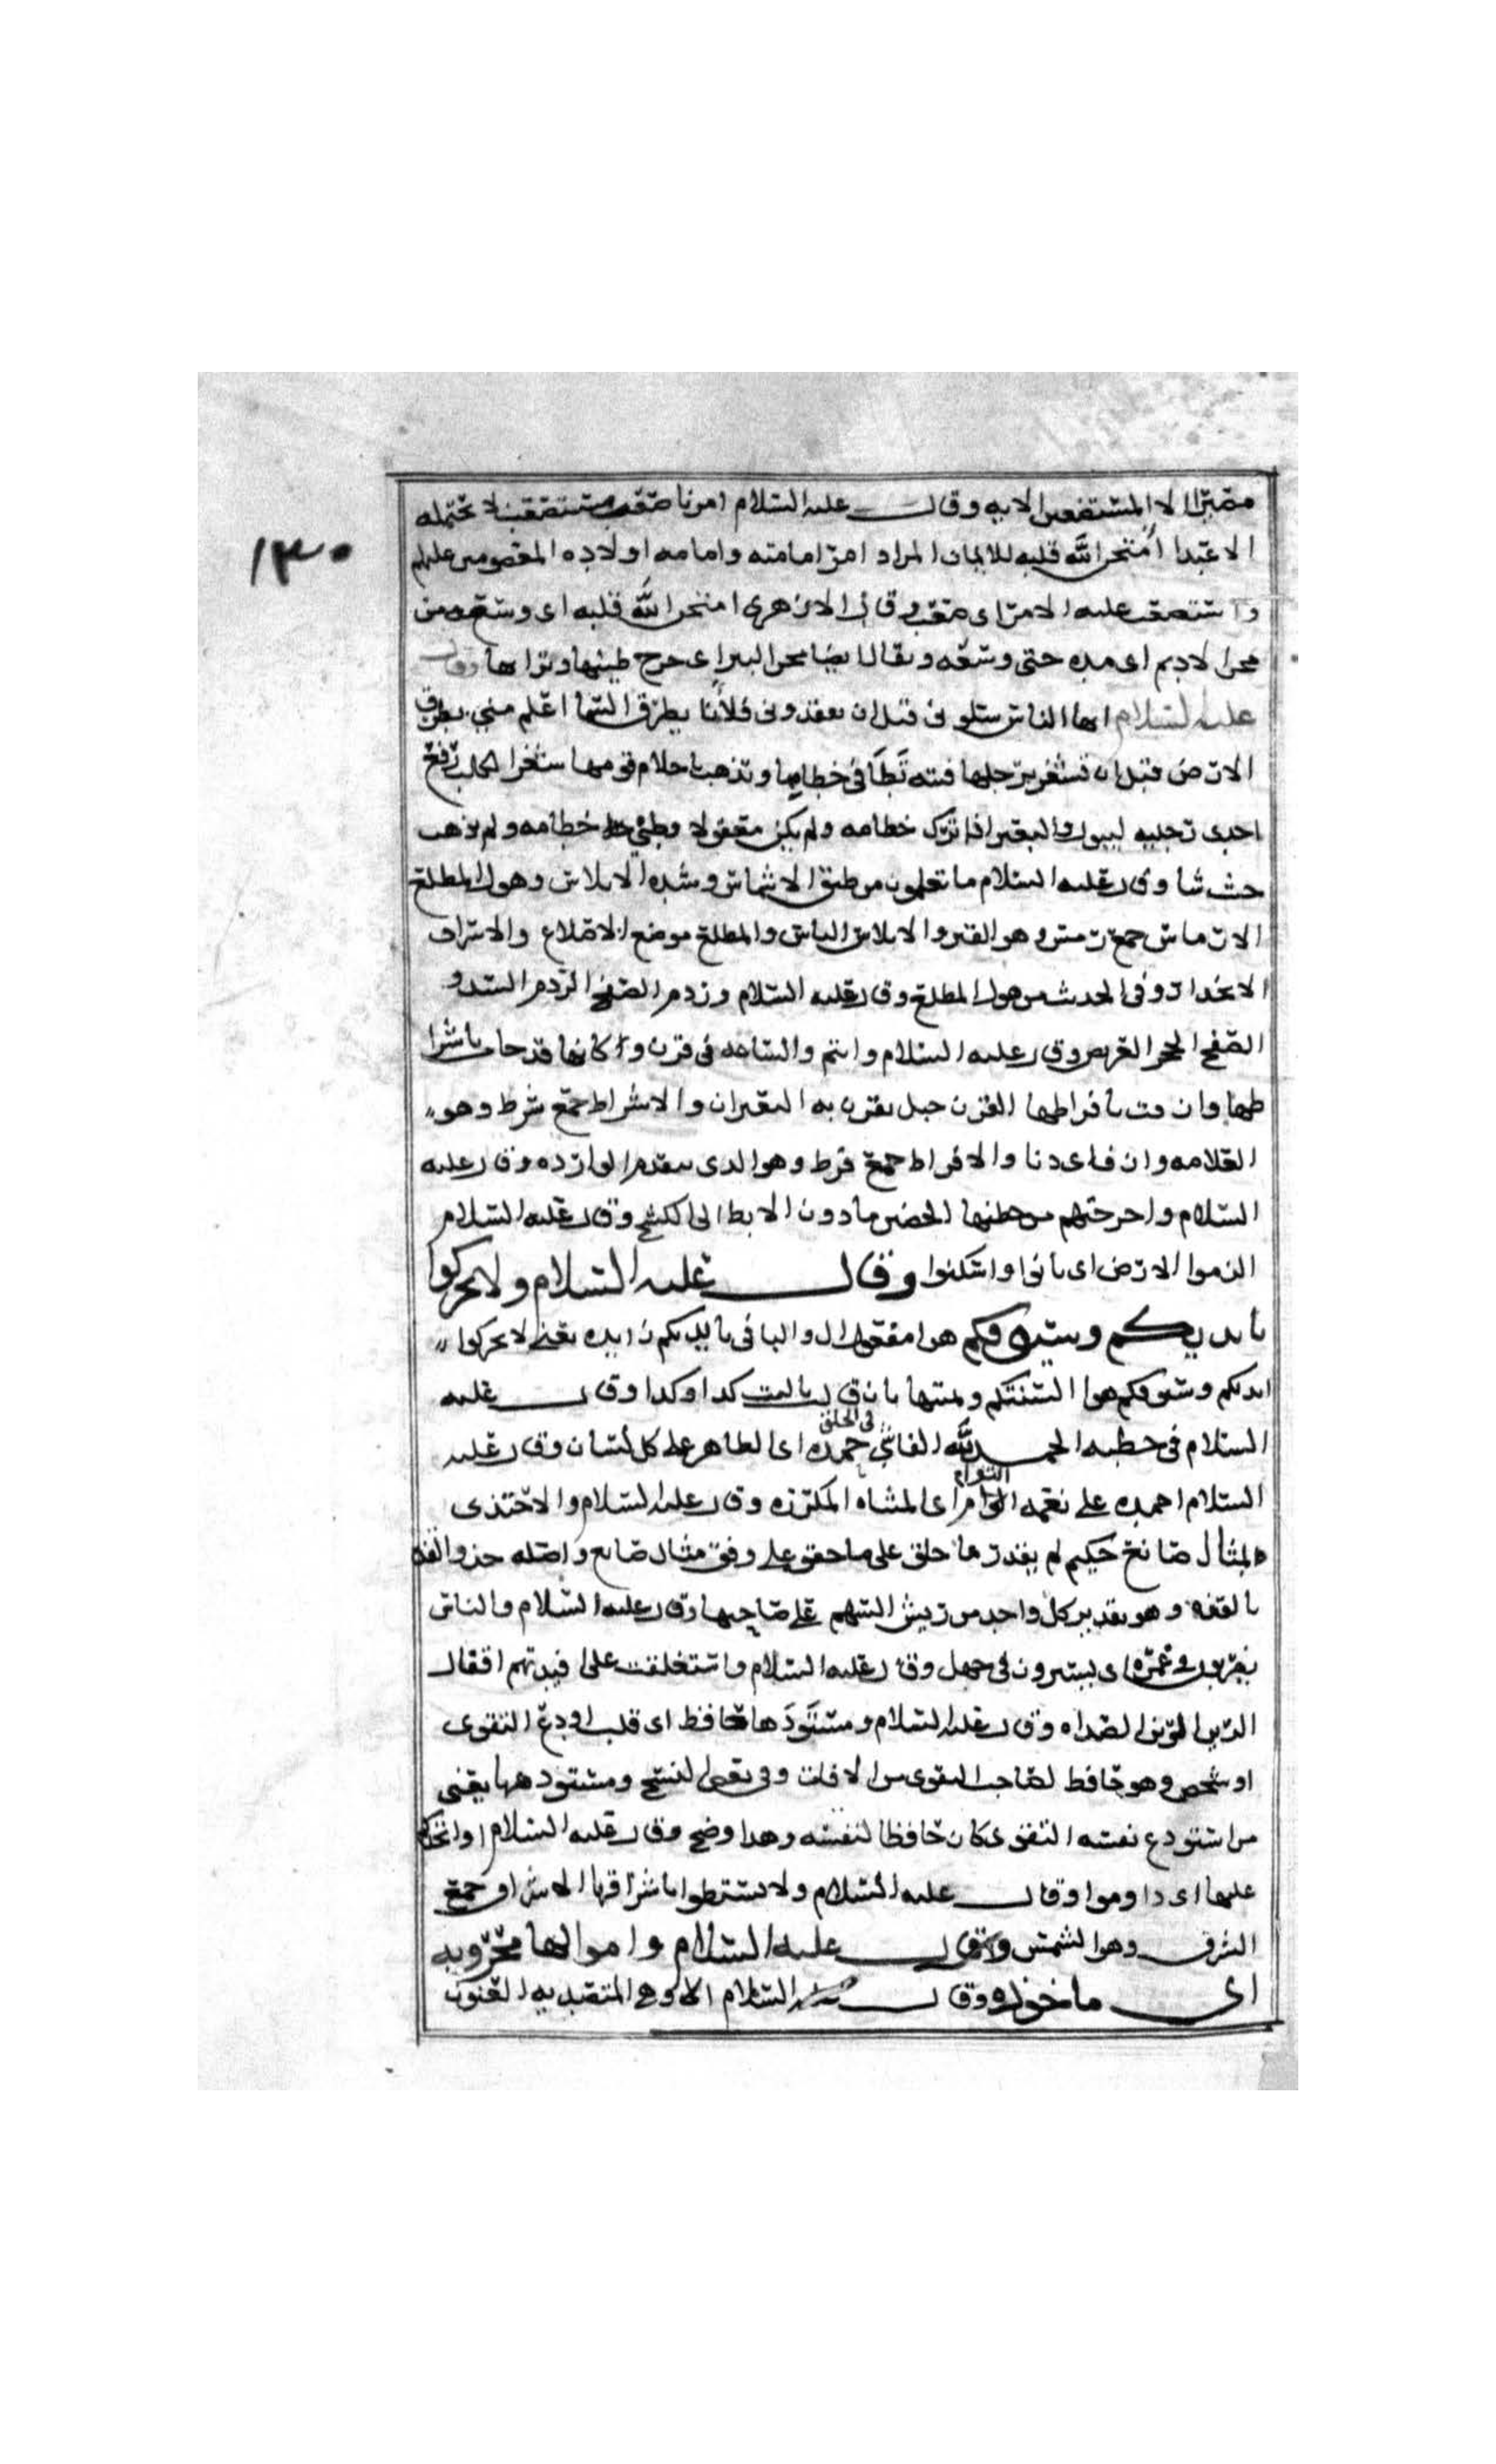 مصيرا الا المستضعفين الايه وقال عليه السلام امرنا صعب مستصعب لا تحتمله
١٣٠
الا عبدا امتحن الله قلبه للايمان المراد امر امامته وامامه اولاده المعصومين عليهم
واستصعب عليه الامر اى صعب وقال الازهرى امتحن الله قلبه اى وسعه من
محن الاديم اى مده حتى وسعه ويقال ايضا محن البير اى اخرج طينها وترابها وقال
عليه السلام ايها الناس سلونى قبل ان تفقدونى فلأنا بطرق السما اعلم منى بطرق
الارض قبل ان تشغر برجلها فتنه تَطَأ فى خطامها وتذهب باحلام قومها شغر الكلب رفع
احدى رجليه ليبول والبعير اذا ترك خطامه ولم يكن معقولا وطئ خطامه ولم يذهب
حيث شا وقال عليه السلام ما تعلمون من ضيق الارماس وشده الابلاس وهول المطلع
الارماس جمع رمس وهو القبر والابلاس الياس والمطلع موضع الاطلاع والاشراف
الانحدار وفى الحديث من هول المطلع وقال عليه السلام وردم الصفيح الردم السد و
الصفيح الحجر العريض وقال عليه السلام وانتم والساعه فى قرن وكانها قد جات باشرا
طها وازفت بافراطها القرن حبل يقرن به البعيران والاشراط جمع شرط وهو
العلامه وازف اى دنا والافراط جمع فرط وهو الذى يتقدم الوارده وقال عليه
السلام واخرجتهم من حضنها الحضن ما دون الابط الى الكشح وقال عليه السلام
الزموا الارض اى تأنوا واسكنوا وقال عليه السلام ولا تحركوا
بايديكم وسيوفكم هوا مفعول له والبا فى بايديكم زايده يعنى لا تحركوا
ايديكم وسيوفكم هوا السنتكم ومنتها بان قال يا ليت كذا وكذا وقال عليه
السلام فى خطبه الحمد لله الفاشى فى الخلق حمده اى الظاهر على كل لسان وقال عليه
السلام احمده على نعمه التوام اى المثناه المكرره وقال عليه السلام ولا احتذى
لمثال صانع حكيم لم يقدر ما خلق على ما حقق على وفق مثال صانع واصله حذو القذه
بالقذه وهو تقدير كل واحد من ريش السهم على صاحبها وقال عليه السلام والناس
يضربون فى غمره اى يسيرون فى جهل وقال عليه السلام واستغلقت على افيدتهم اقفال
الرين الرين الصداه وقال عليه السلام ومستودعها حافظ اى قلب اودع التقوى
او شخص وهو حافظ لصاحب التقوى من الافات وفى بعض النسخ ومستودعها يعنى
من استودع نفسه التقوى كان حافظا لنفسه وهذا واضح وقال عليه السلام
عليها اى داوموا وقال عليه السلام ولا تستضيوا باشراقها الاشراق جمع
الشرق وهو الشمس وقال عليه السلام واموالها محروبه
اى ماخوذه وقال عليه السلام الا وهى المتصديه العنون